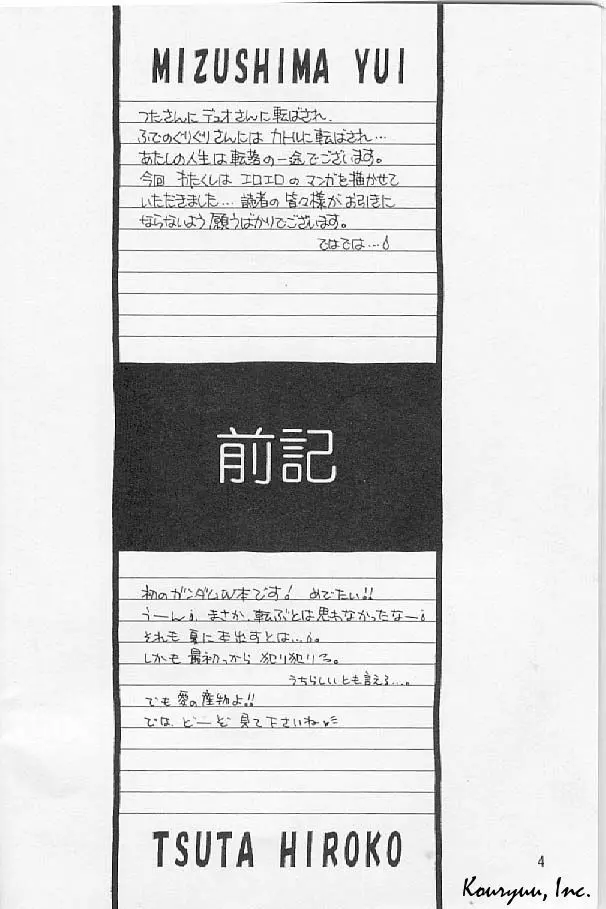 MIZUSHIMA YUI
つたさんに デュオさんに転ばされ、
ふでのぐりぐりさんには カトルに転ばされ…
あたしの人生は転落の一途でございます。
今回 わたくしは エロエロの マンガを描かせて
いただきました… 読者の 皆々様が お引きに
ならないよう 願うばかりでございます。
ではでは…
前記
初のガンダムW本です! めでたい!!
うーん、まさか、転ぶとは思わなかったなー
それも 夏に本出すとは…。
しかも 最初っから 犯り犯りろ。
うちらしいとも言える…。
でも 愛の産物よ!!
では、どーぞ 見て下さいね
TSUTA HIROKO
4
Kouryuu, Inc.